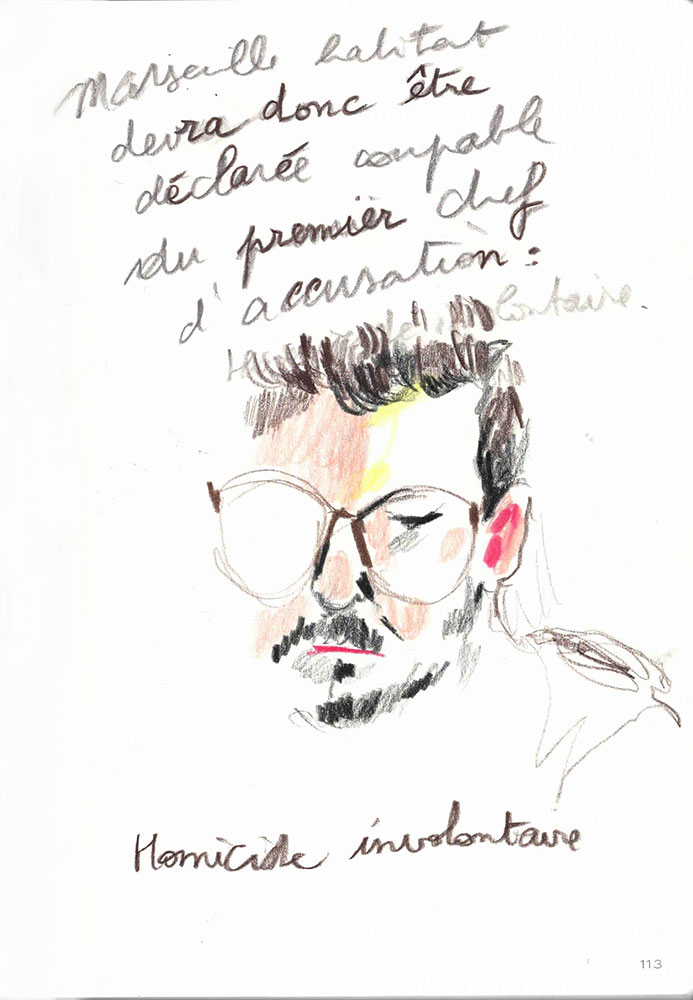 Marseille habitat
devra donc être
déclarée coupable
du premier chef
d'accusation :
Homicide involontaire.
Homicide involontaire
113